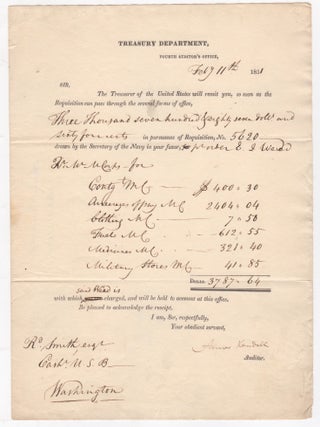 TREASURY DEPARTMENT,
FOURTH AUDITOR'S OFFICE,
Feby 11th 1831
SIR,
The Treasurer of the United States will remit you, as soon as the
Requisition can pass through the several forms of office,
Three Thousand seven hundred & eighty seven dolls and
sixty four cents in pursuance of Requisition, No. 5620
drawn by the Secretary of the Navy in your favor, to pr order E J Weed
Qr Mr M Corps for
Conty M C $ 400 " 30
Arrearages of pay M C 2404 " 04
Clothing M C 7 " 50
Fuel M C 612 " 55
Medicines M C 321 " 40
Military Stores M C 41 " 85
DOLLS. 3787 " 64
said Weed is
with which charged, and will be held to account at this office.
Be pleased to acknowledge the receipt.
I am, Sir, respectfully,
Your obedient servant,
Amos Kendall
Auditor.
Rd Smith esqr
Cashr U S B
Washington